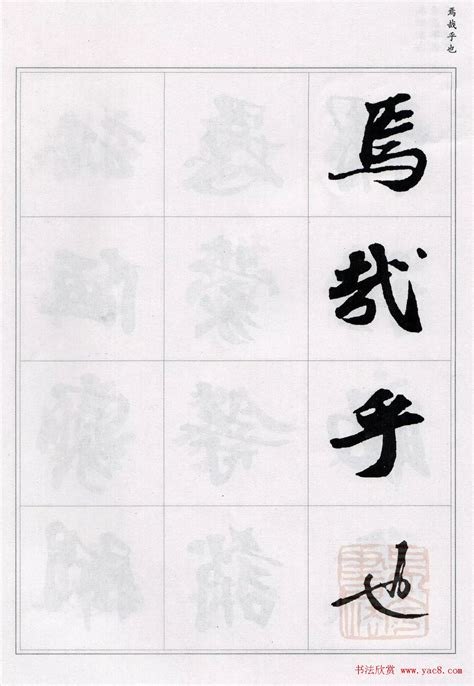 焉哉乎也
焉
哉
乎
也
书法欣赏 www.yac8.com